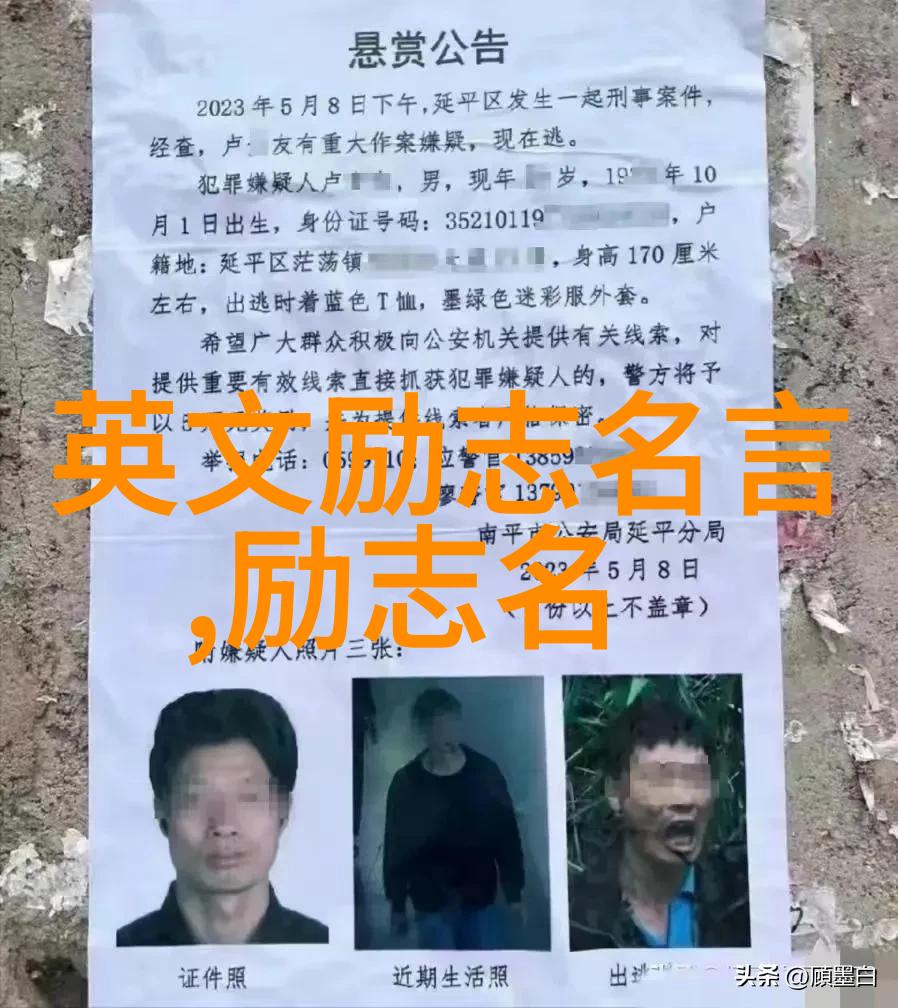 悬赏公告
2023年5月8日下午,延平区发生一起刑事案件,
经查,卢 友有重大作案嫌疑,现在逃。
犯罪嫌疑人卢 ,男,现年 岁,19 年10
月1日出生,身份证号码:35210119 ,户
籍地:延平区茫荡镇 ,身高170厘米
左右,出逃时着蓝色T恤,墨绿色迷彩服外套。
希望广大群众积极向公安机关提供有关线索,对
提供重要有效线索直接抓获犯罪嫌疑人的,警方将予
以
英文励志名言
举 电话:0599 警官13859
1379
南平市公安局延平分局
,励志名
2023年5月8日
份以上不盖章)
附嫌疑人照片三张:
证件照
近期生活照
出逃
头条 @顾墨白